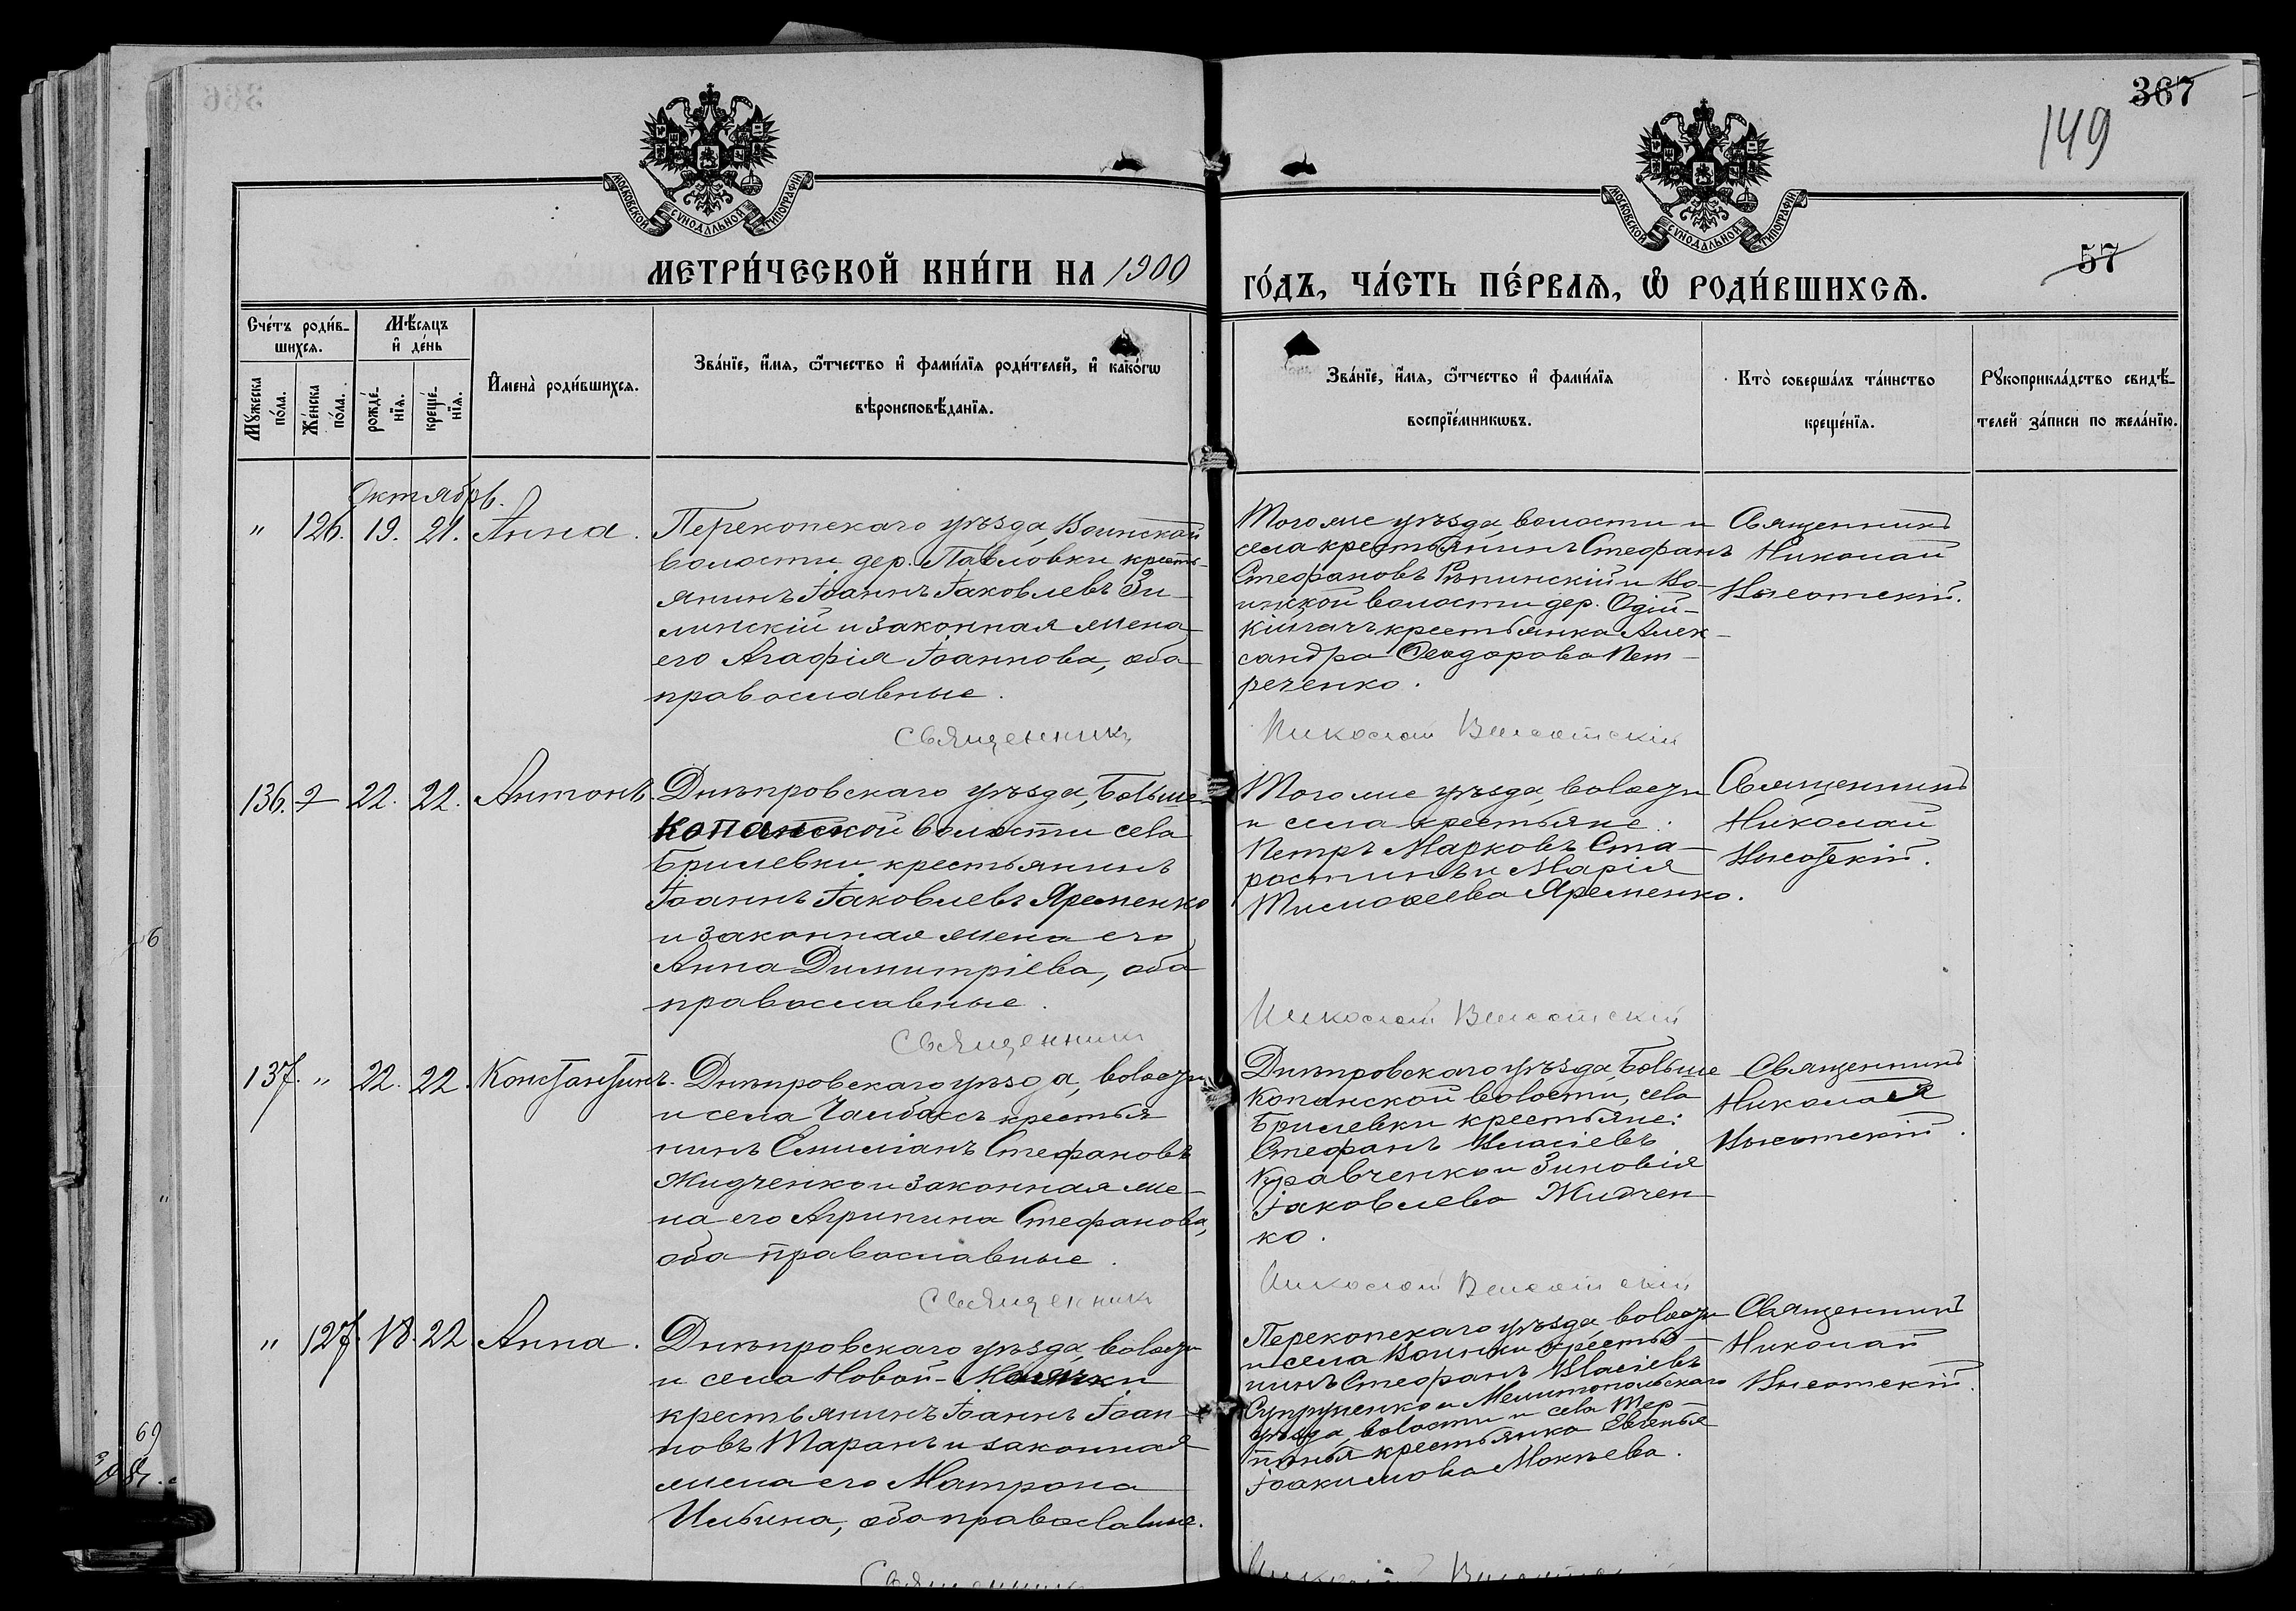 367
149
МОСКОВСКОЙ СУНОДАЛЬНОЙ ТИПОГРАФІИ
МОСКОВСКОЙ СУНОДАЛЬНОЙ ТИПОГРАФІИ
57
МЕТРИ́ЧЕСКОЙ КНИ́ГИ НА 1900
ГО́ДЪ, ЧА́СТЬ ПЕ́РВАѦ, Ѡ҆ РОДИ́ВШИХСѦ.
Сче́тъ роди́в-
шихсѧ.
Мꙋ́жеска
по́ла.
Же́нска
по́ла.
Мѣ́сѧцъ
и҆ де́нь
рожде́-
нїѧ.
креще́-
нїѧ.
И҆мена̀ роди́вшихсѧ.
Зва́нїе, и҆́мѧ, ѻ҆́тчество и҆ фами́лїѧ роди́телей, и҆ како́гѡ
вѣроисповѣ́данїѧ.
Зва́нїе, и҆́мѧ, ѻ҆́тчество и҆ фами́лїѧ
воспрїе́мникѡвъ.
Кто̀ соверша́лъ та́инство
креще́нїѧ.
Рꙋкоприкла́дство свидѣ́-
телей за́писи по жела́нїю.
Октябрь.
" 126. 19. 21. Анна.
Перекопскаго уѣзда, Воинской
волости дер. Павловки кресть-
янинъ Іоаннъ Іаковлевъ Зи-
линскій и законная жена
его Агафія Іоаннова, оба
православные.
Тогоже уѣзда, волости и
села крестьянинъ Стефанъ
Стефановъ Рѣпинскій и Во-
инской волости дер. Одій-
Кійгачъ крестьянка Алек-
сандра Ѳеодорова Пет-
реченко.
Священникъ
Николай
Высотскій.
Священникъ Николай Высотскій
136. 22. 22. Антонъ.
Днѣпровскаго уѣзда, Больше-
Копанской волости села
Брилевки крестьянинъ
Іоаннъ Іаковлевъ Яременко
и законная жена его
Анна Димитріева, оба
православные.
Тогоже уѣзда, волости
и села крестьяне:
Петръ Марковъ Ста-
ростинъ и Марія
Тимоѳеева Яременко.
Священникъ
Николай
Высотскій.
Священникъ Николай Высотскій
137. " 22. 22. Константинъ.
Днѣпровскаго уѣзда, волости
и села Чалбассъ крестья
нинъ Емиліанъ Стефановъ
Жидченко и законная же-
на его Агрипина Стефанова,
оба православные.
Днѣпровскаго уѣзда, Больше
Копанской волости, села
Брилевки крестьяне:
Стефанъ Власіевъ
Кравченко и Зиновія
Іаковлева Жидчен-
ко.
Священникъ
Николай
Высотскій.
Священникъ Николай Высотскій
" 127. 18. 22. Анна.
Днѣпровскаго уѣзда, волости
и села Новой-Маячки
крестьянинъ Іоаннъ Іоан-
новъ Таранъ и законная
жена его Матрона
Ильина, оба православные.
Перекопскаго уѣзда, волости
и села Воинки крестья-
нинъ Стефанъ Власіевъ
Супруненко и Мелитопольскаго
уѣзда, волости и села Тер-
пѣнья крестьянка Евгенья
Іоакимова Мокѣева.
Священникъ
Николай
Высотскій.
Священникъ Николай Высотскій